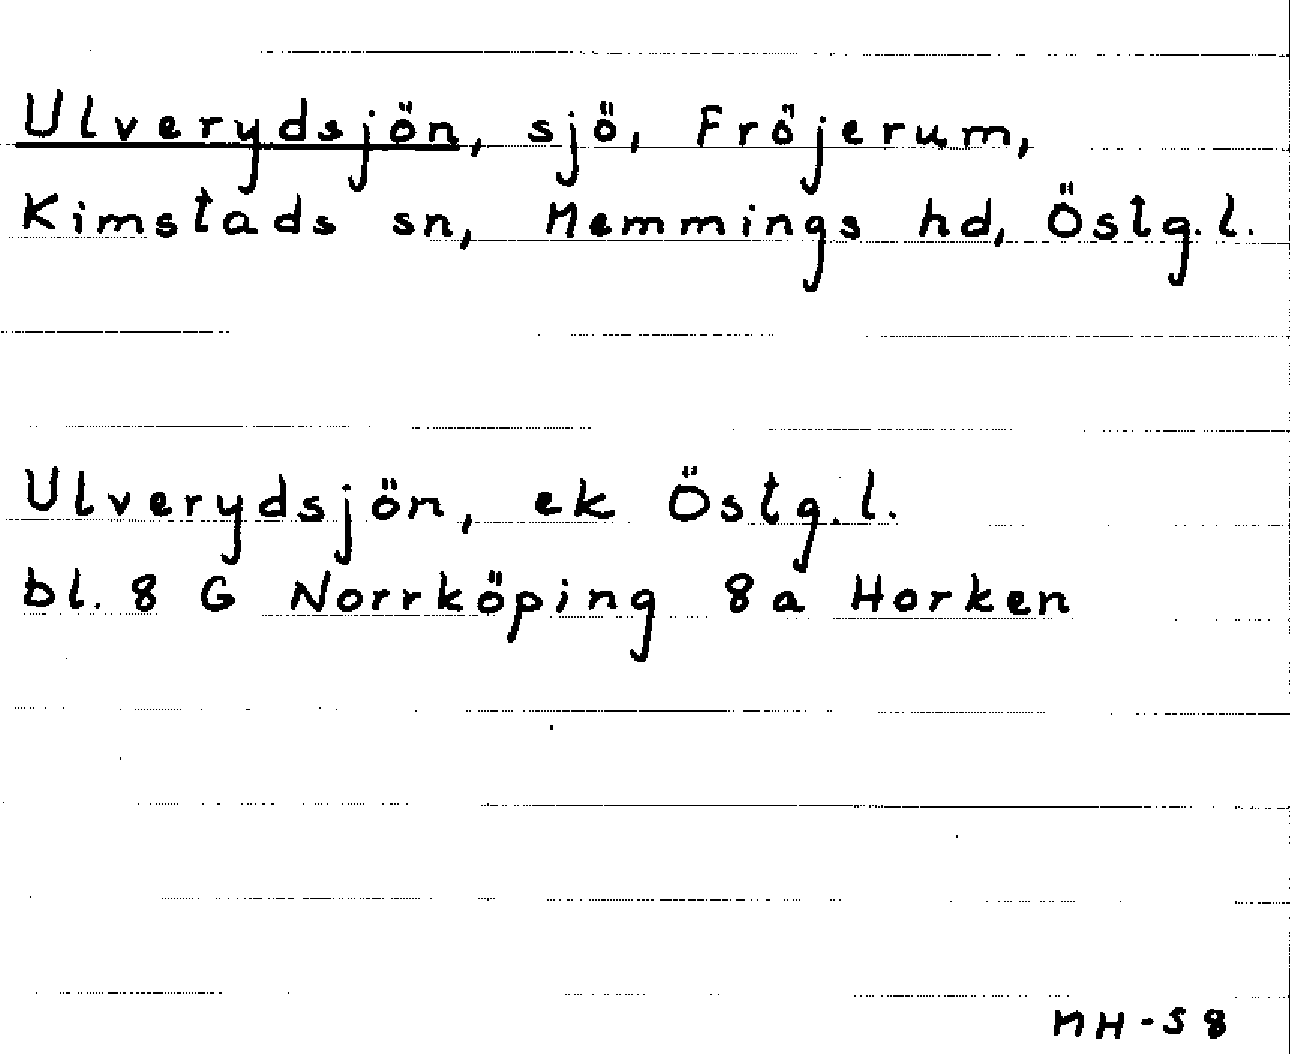 Ulverydsjön, sjö, Fröjerum,
Kimstads sn, Memmings hd, Östg.l.
Ulverydsjön, ek Östg.l.
bl. 8 G Norrköping 8a Horken
MH-58